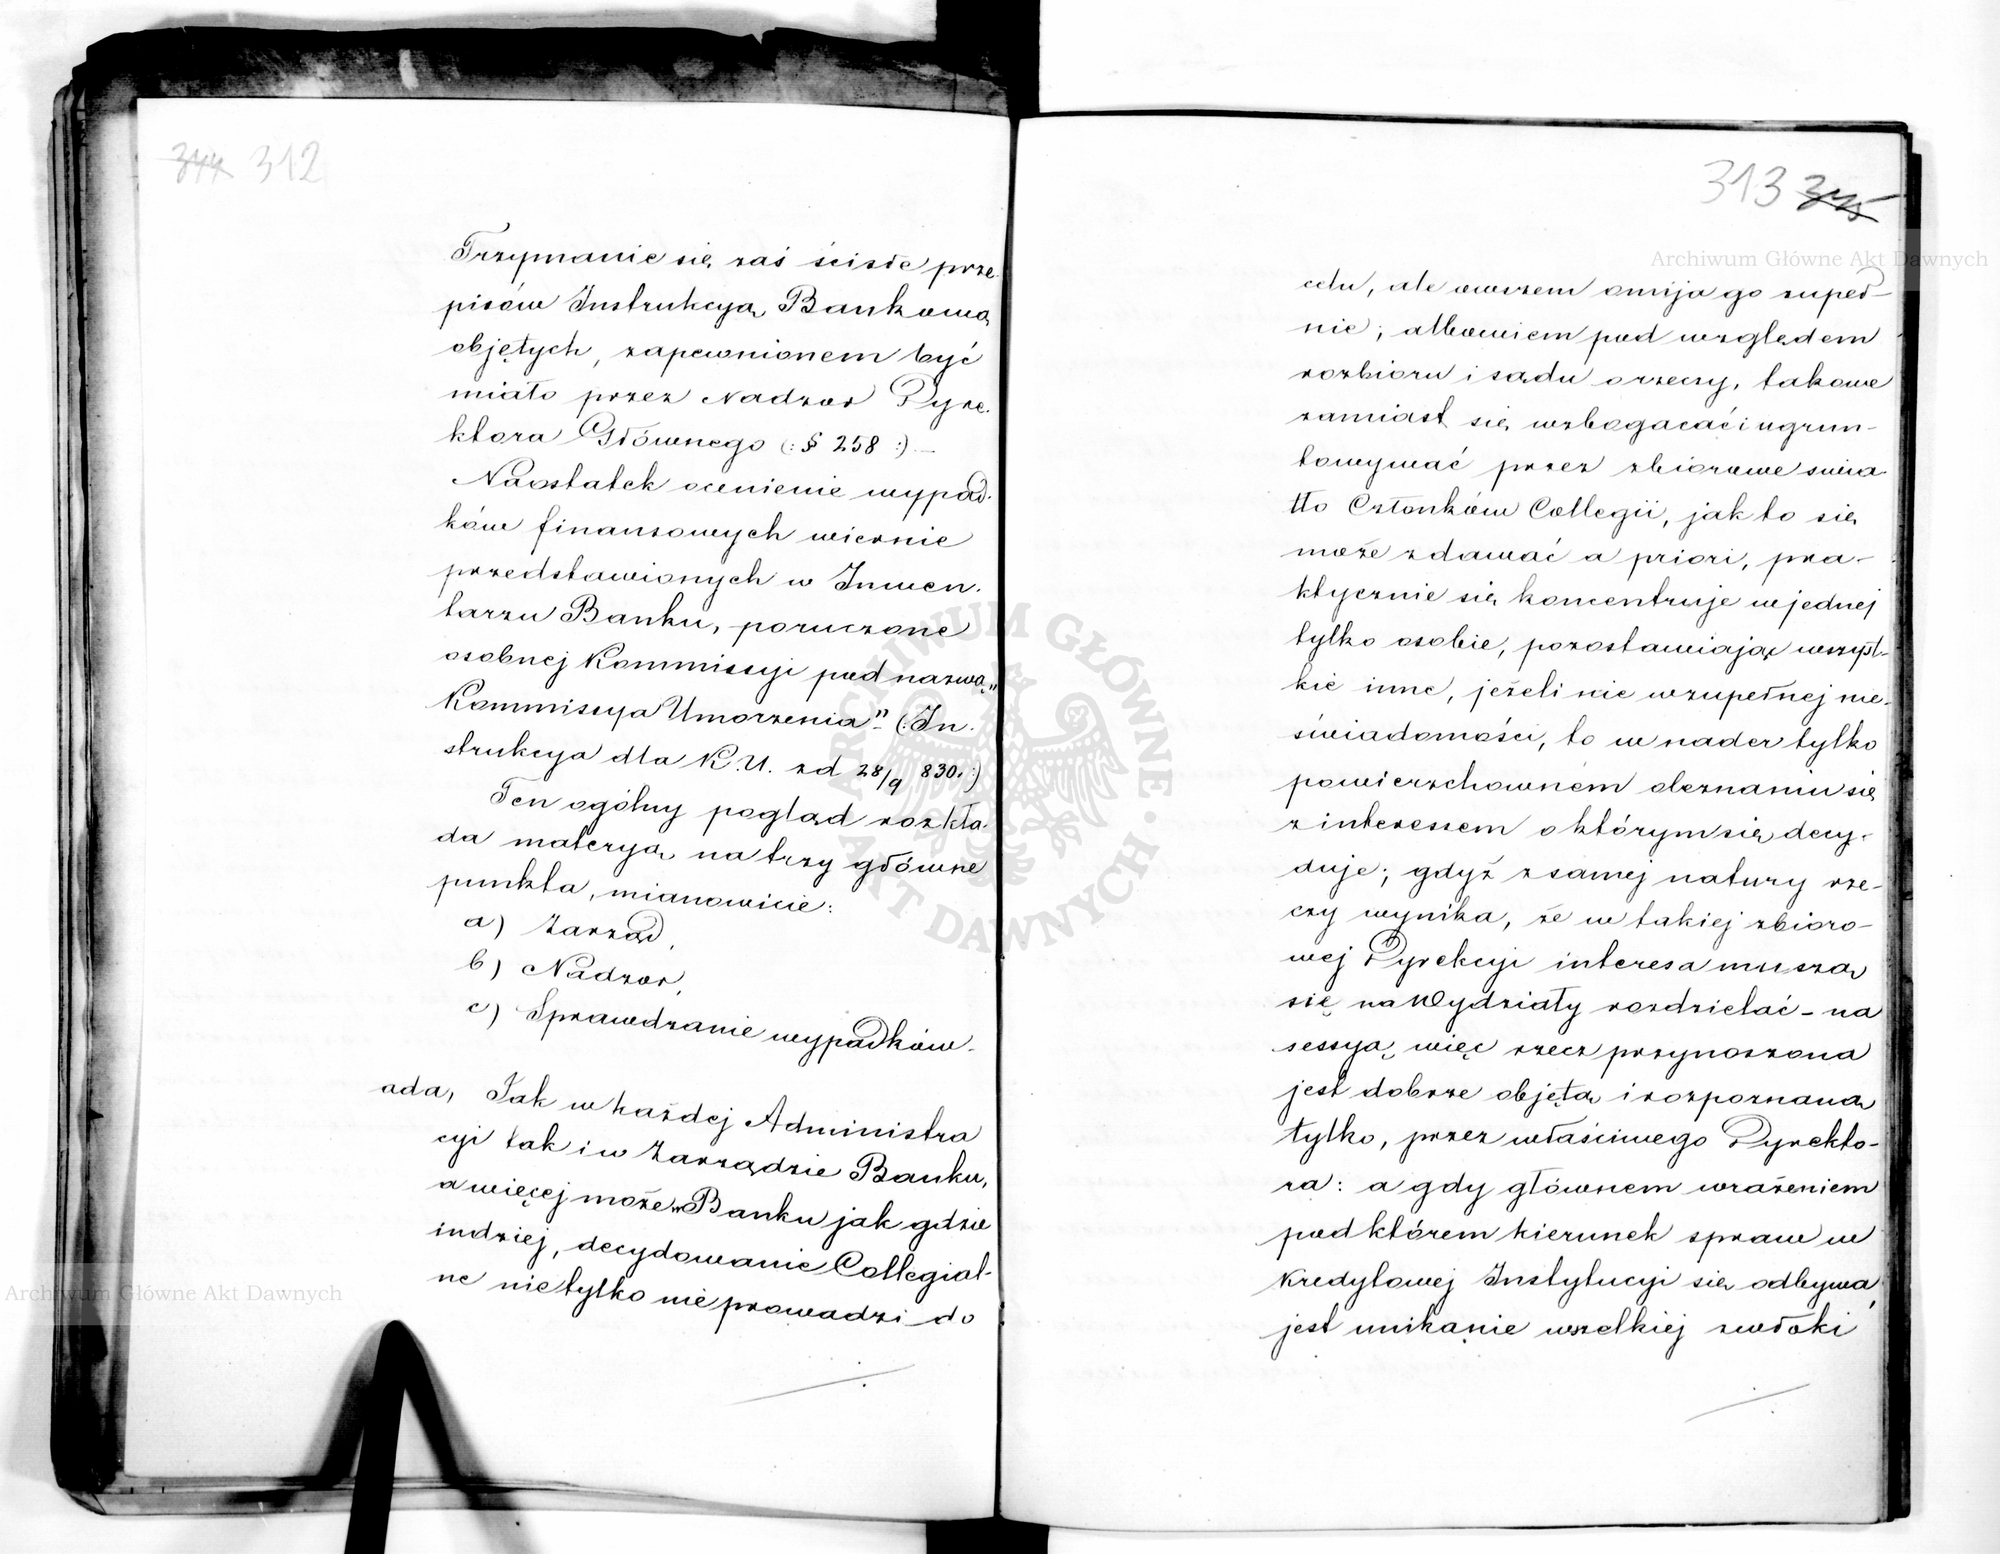 312
Trzymanie się zaś ściśle prze-
pisów Instrukcyą Bankową
objętych, zapewnionem być
miało przez Nadzor Dyre-
ktora Głównego (: § 258 :) —
Naostatek ocenienie wypad-
ków finansowych wiernie
przedstawionych w Inwen-
tarzu Banku, poruczone
osobnej Kommissyi pod nazwą „
Kommissya Umorzenia” (: In-
strukcya dla K. U. zd 28/9 830. :)
Ten ogólny pogląd rozkła-
da materyą na trzy główne
punkta, mianowicie:
a) Zarząd,
b) Nadzor,
c) Sprawdzanie wypadków.
ada, Jak w każdej Administra
cyi tak i w Zarządzie Banku,
a więcej może w Banku jak gdzie
indziej, decydowanie Collegial-
ne nietylko nie prowadzi do
313
Archiwum Główne Akt Dawnych
celu, ale owszem omija go zupeł-
nie; albowiem pod względem
rozbioru i sądu o rzeczy, takowe
zamiast się wzbogacać i ugrun-
towywać przez zbiorowe świa-
tło Członków Collegii, jak to się
może zdawać a priori, pra-
ktycznie się koncentruje w jednej
tylko osobie, pozostawiając wszyst-
kie inne, jeżeli nie w zupełnej nie-
świadomości, to w nader tylko
powierzchownem obeznaniu się
z interessem o którym się decy-
duje; gdyż z samej natury rze-
czy wynika, że w takiej zbioro-
wej Dyrekcyi interesa muszą
się na Wydziały rozdzielać – na
sessyą więc rzecz przynoszona
jest dobrze objęta i rozpoznana
tylko, przez właściwego Dyrekto-
ra: a gdy głównem wrażeniem
pod którem kierunek spraw w
Kredytowej Instytucyi się odbywa,
jest unikanie wszelkiej zwłoki
ARCHIWUM GŁÓWNE AKT DAWNYCH
Archiwum Główne Akt Dawnych